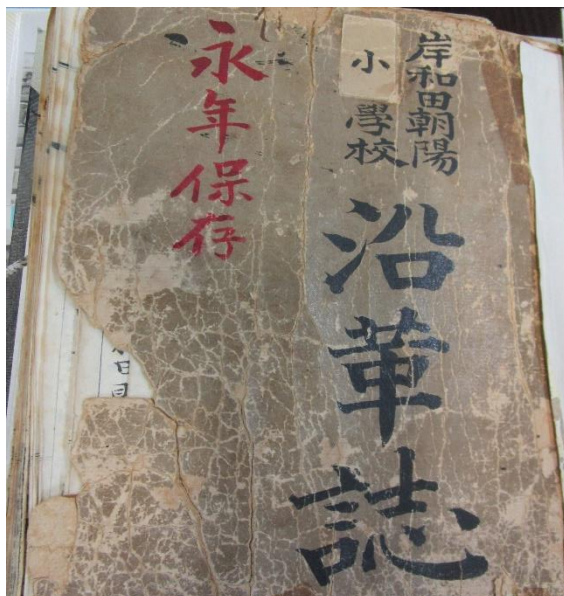 岸和田朝陽
小學校
沿革誌
永年保存